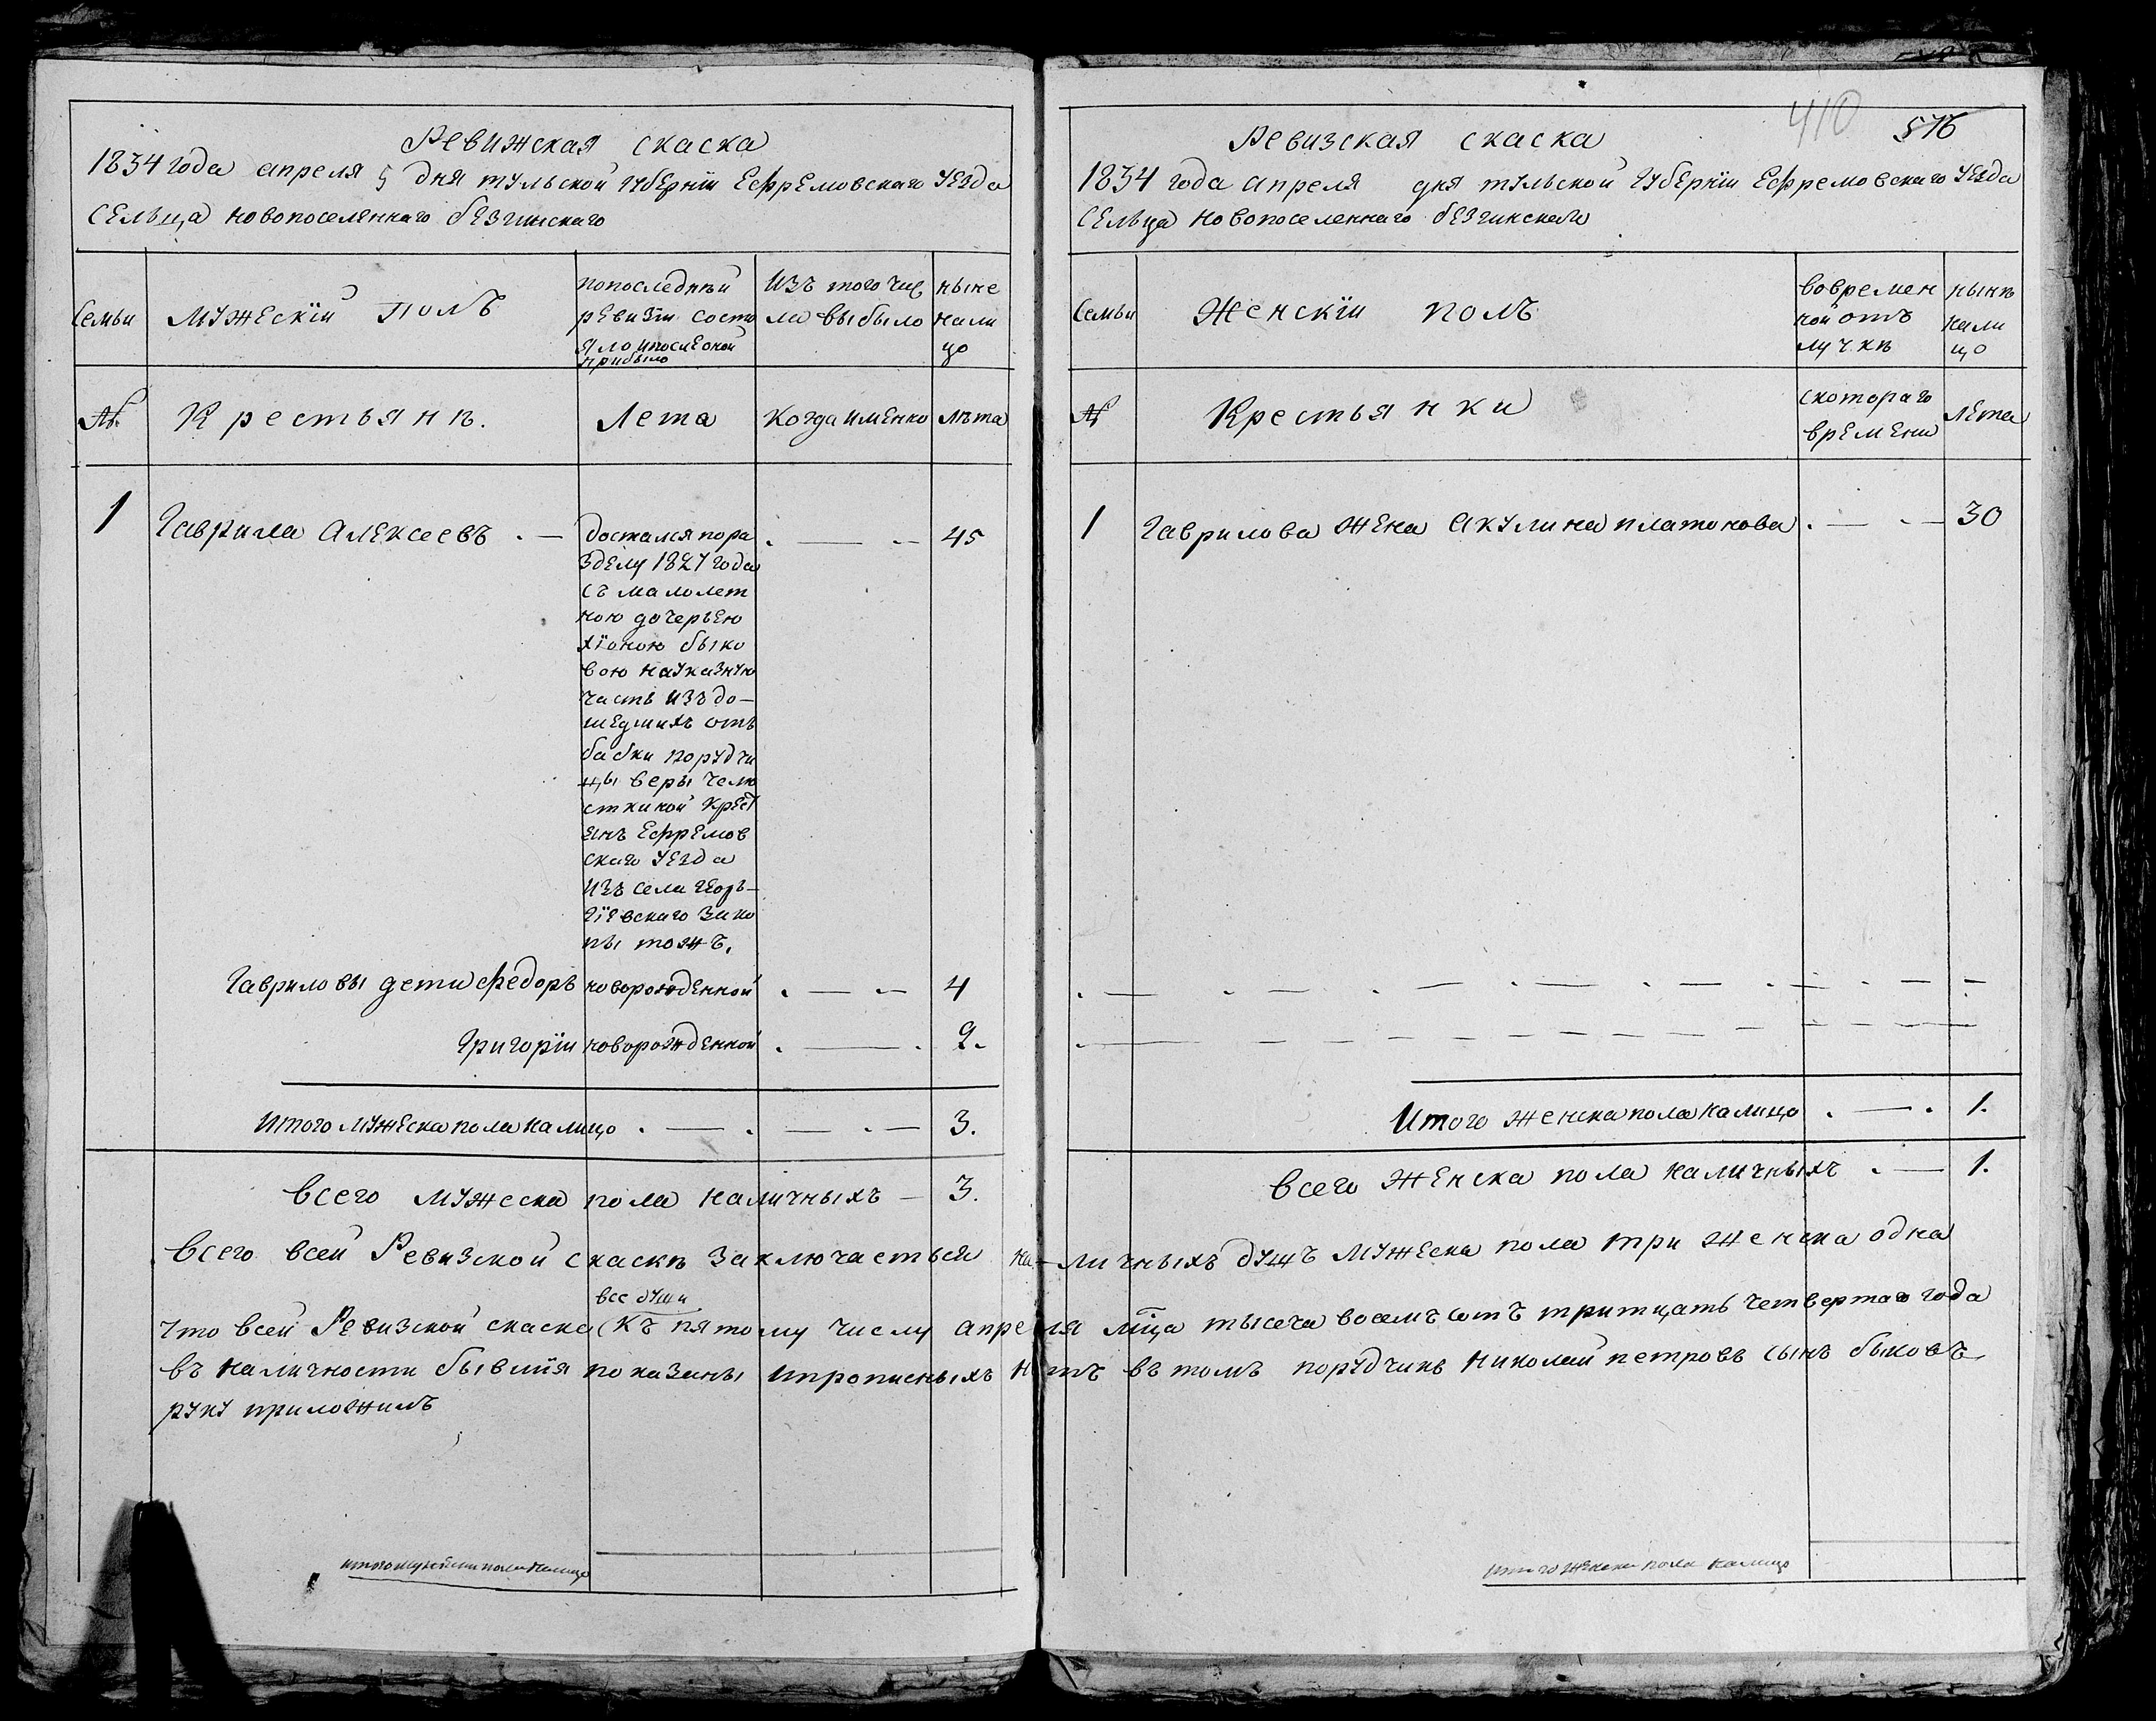 Ревижская скаска
1834 года апреля 5 дня тульской губернїи Ефремовскаго уезда
сельца новопоселеннаго безгинскаго
Семьи
мужескїи полъ
попоследнѣй
ревизїи состо
яло ипослеоной
прибыло
Изъ того чис
ла выбыло
ныне
нали
цо
№
Крестьянѣ.
Лета
Когда именно
лѣта
1
Гаврила Алексеевъ
достался пора
зделу 1827 года
съ малолет
ною дочерьею
хїоною быко
вою науказную
часть изъ до-
шедшихъ отъ
бабки порудчи
цы веры челю
сткиной крест
янъ Ефремов
скаго уезда
Изъ села геор-
гїевскаго
тожъ.
45
Гавриловы дети Федоръ новорожденной 4
Григорїи новорожденной 2.
Итого мужеска пола налицо 3.
всего мужеска пола наличныхъ 3.
410
576
Ревизская скаска
1834 года апреля дня тульской губернїи Ефремовскаго уезда
сельца новопоселеннаго безгинскаго
Семьи
Женскїи полъ
вовремен
ной отъ
лучкѣ
нынѣ
нали
цо
№
Крестьянки
скотораго
времени
лета
1 Гаврилова жена Акулина платонова 30
Итого женска пола налицо 1.
всего женска пола наличныхъ 1.
всего всей Ревизской скаскѣ заключаеться на-личныхъ душъ мужеска пола три женска одна
все души
что всей Ревизской скаске къ пятому числу апреля мца тысеча восемъсотъ тритцать четвертаго года
въ наличности бывшїя показаны ипрописныхъ нетъ въ томъ порудчикъ николай петровъ сынъ быковъ
руку приложилъ
итого мужеска пола налицо
итого женска пола налицо